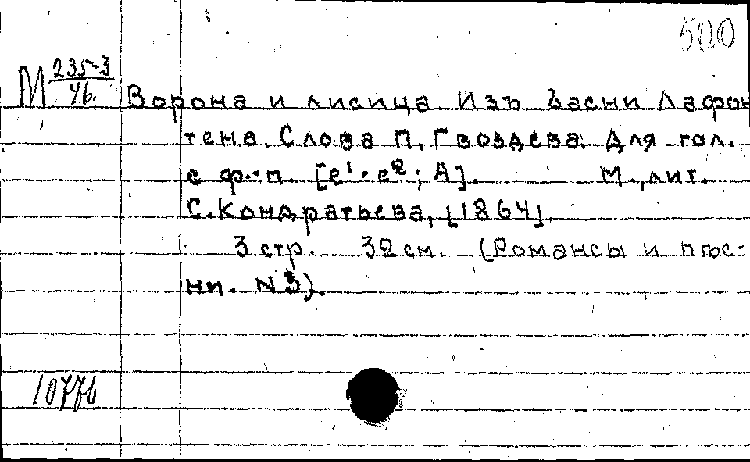 500
М 235-3/46.
Ворона и лисица. Изъ басни Лафон
тена. Слова П. Гвоздева. Для гол.
с ф-п. [e¹-e²; A]. М., лит.
С. Кондратьева, [1864].
3 стр. 32 см. (Романсы и пѣс-
ни. N 3).
10776